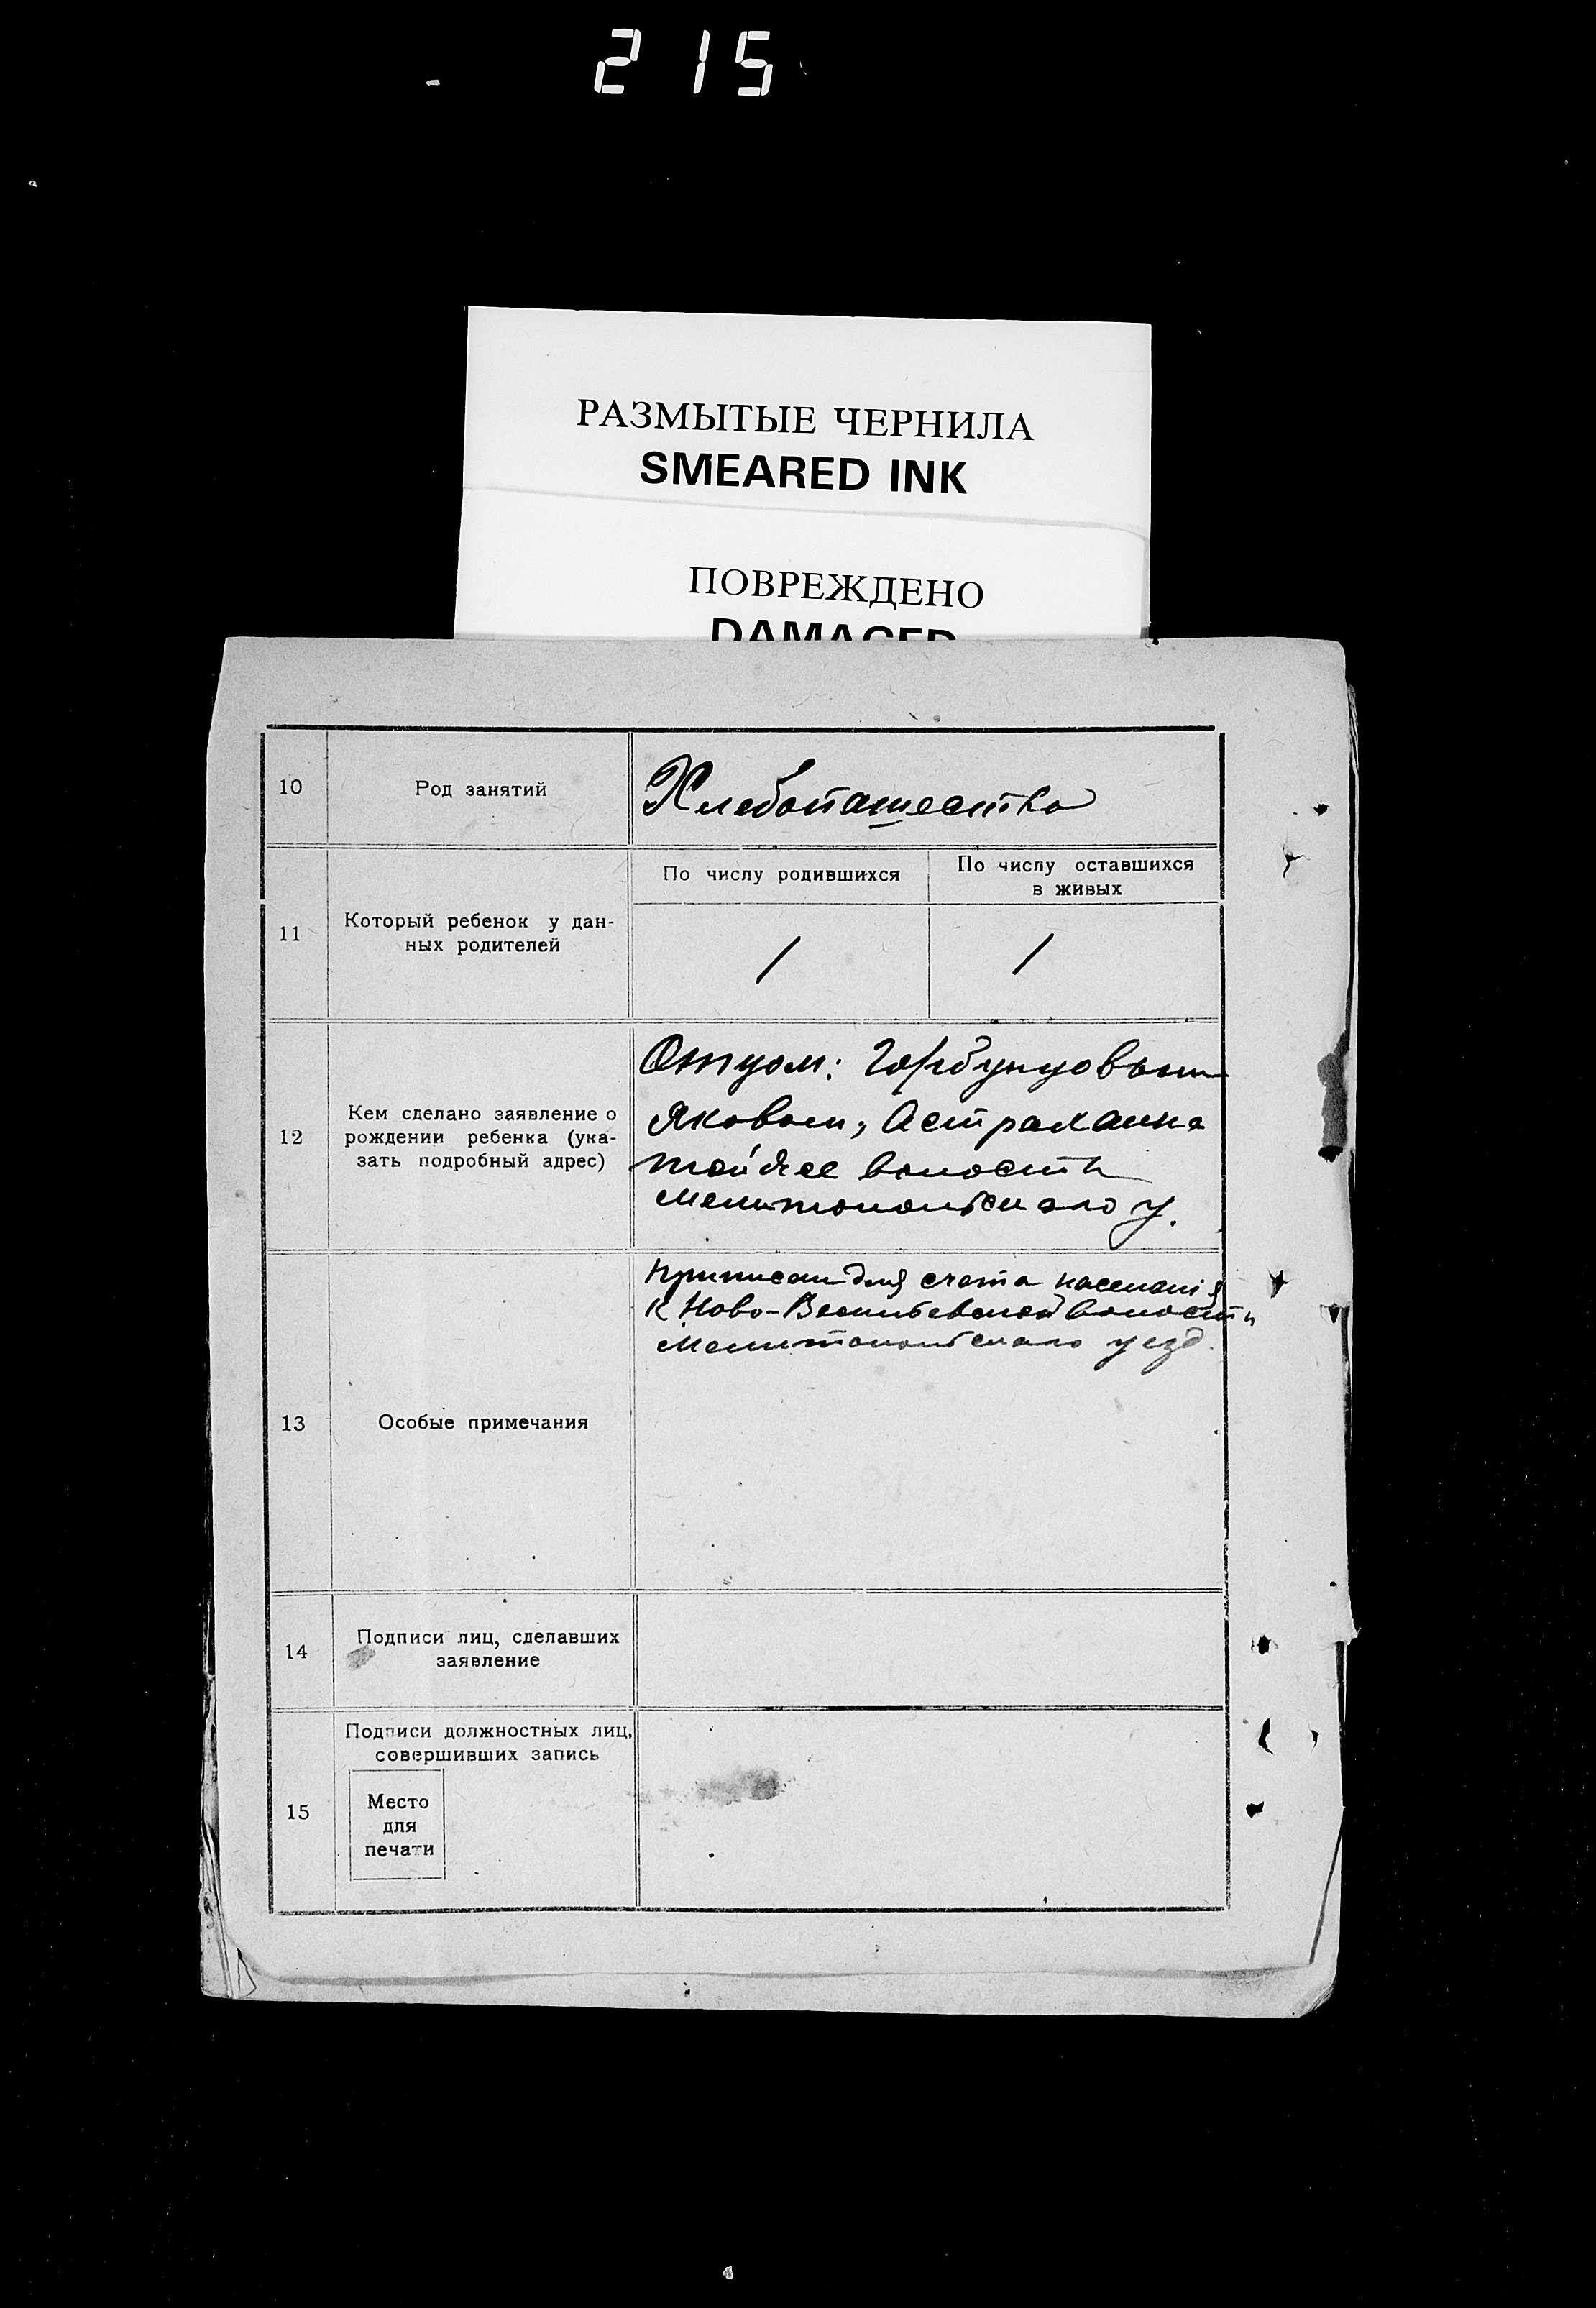 215
РАЗМЫТЫЕ ЧЕРНИЛА
SMEARED INK
ПОВРЕЖДЕНО
DAMAGED
10
Род занятий
Хлебопашество
11
Который ребенок у дан-
ных родителей
По числу родившихся
По числу оставшихся
в живых
1
1
12
Кем сделано заявление о
рождении ребенка (ука-
зать подробный адрес)
Отцом:
Яковом, Астраханка
той же волости
Мелитопольскаго у.
13
Особые примечания
Приписан для счета населенія
к Ново-Васильевской волости
Мелитопольскаго уезд.
14
Подписи лиц, сделавших
заявление
15
Подписи должностных лиц,
совершивших запись
Место
для
печати